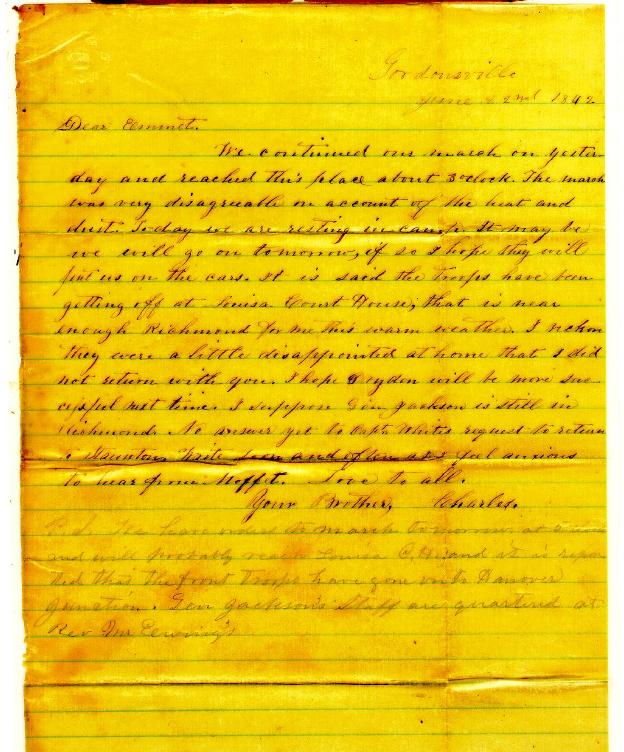 Gordonsville
June 22nd 1862
Dear Emmet.
We continued our march on yester-
day and reached this place about 3 oclock. The march
was very disagreeable on account of the heat and
dust. Today we are resting in camp. It may be
we will go on tomorrow, if so I hope they will
put us on the cars. It is said the troops have been
getting off at Louisa Court House, that is near
enough Richmond for me this warm weather. I reckon
they were a little disappointed at home that I did
not return with you. I hope Dryden will be more suc-
cessful next time. I suppose Gen Jackson is still in
Richmond. No answer yet to Capt. White's request to return
Staunton. Write soon and often as I feel anxious
to hear from Moffet. Love to all.
Your Brother, Charles.
P.S. We have orders to march tomorrow at
and will probably reach Louisa C.H. and it is repor
ted that the front troops have gone on to Hanover
Junction. Gen Jackson's Staff are quartered at
Rev Mr Ewing's